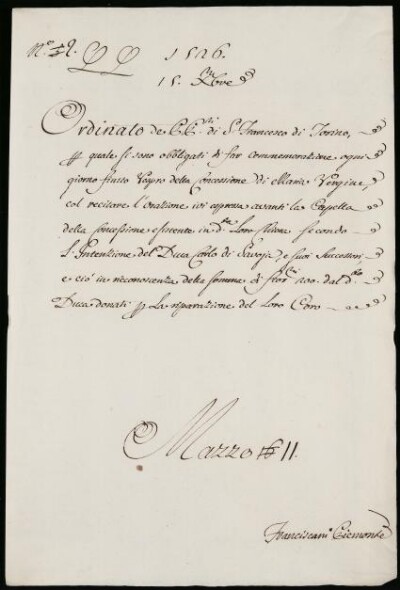 1526.
15. Xbre
Ordinato de RR. di S. Francesco di Torino,
per quale si sono obbligati di far commemorazione ogni
giorno finito Vespro della Concessione di Maria Vergine,
col recitare l'orazione ivi espressa avanti la Capella
della Concessione esistente in d.ta Loro Chiesa secondo
L'Intenzione del Duca Carlo di Savoja, e suoi Successori,
e ciò in riconoscenza della somma di fior. 200. dal d.to
Duca donati per La riparazione del Loro Coro
Mazzo 11.
Franciscani Piemonte